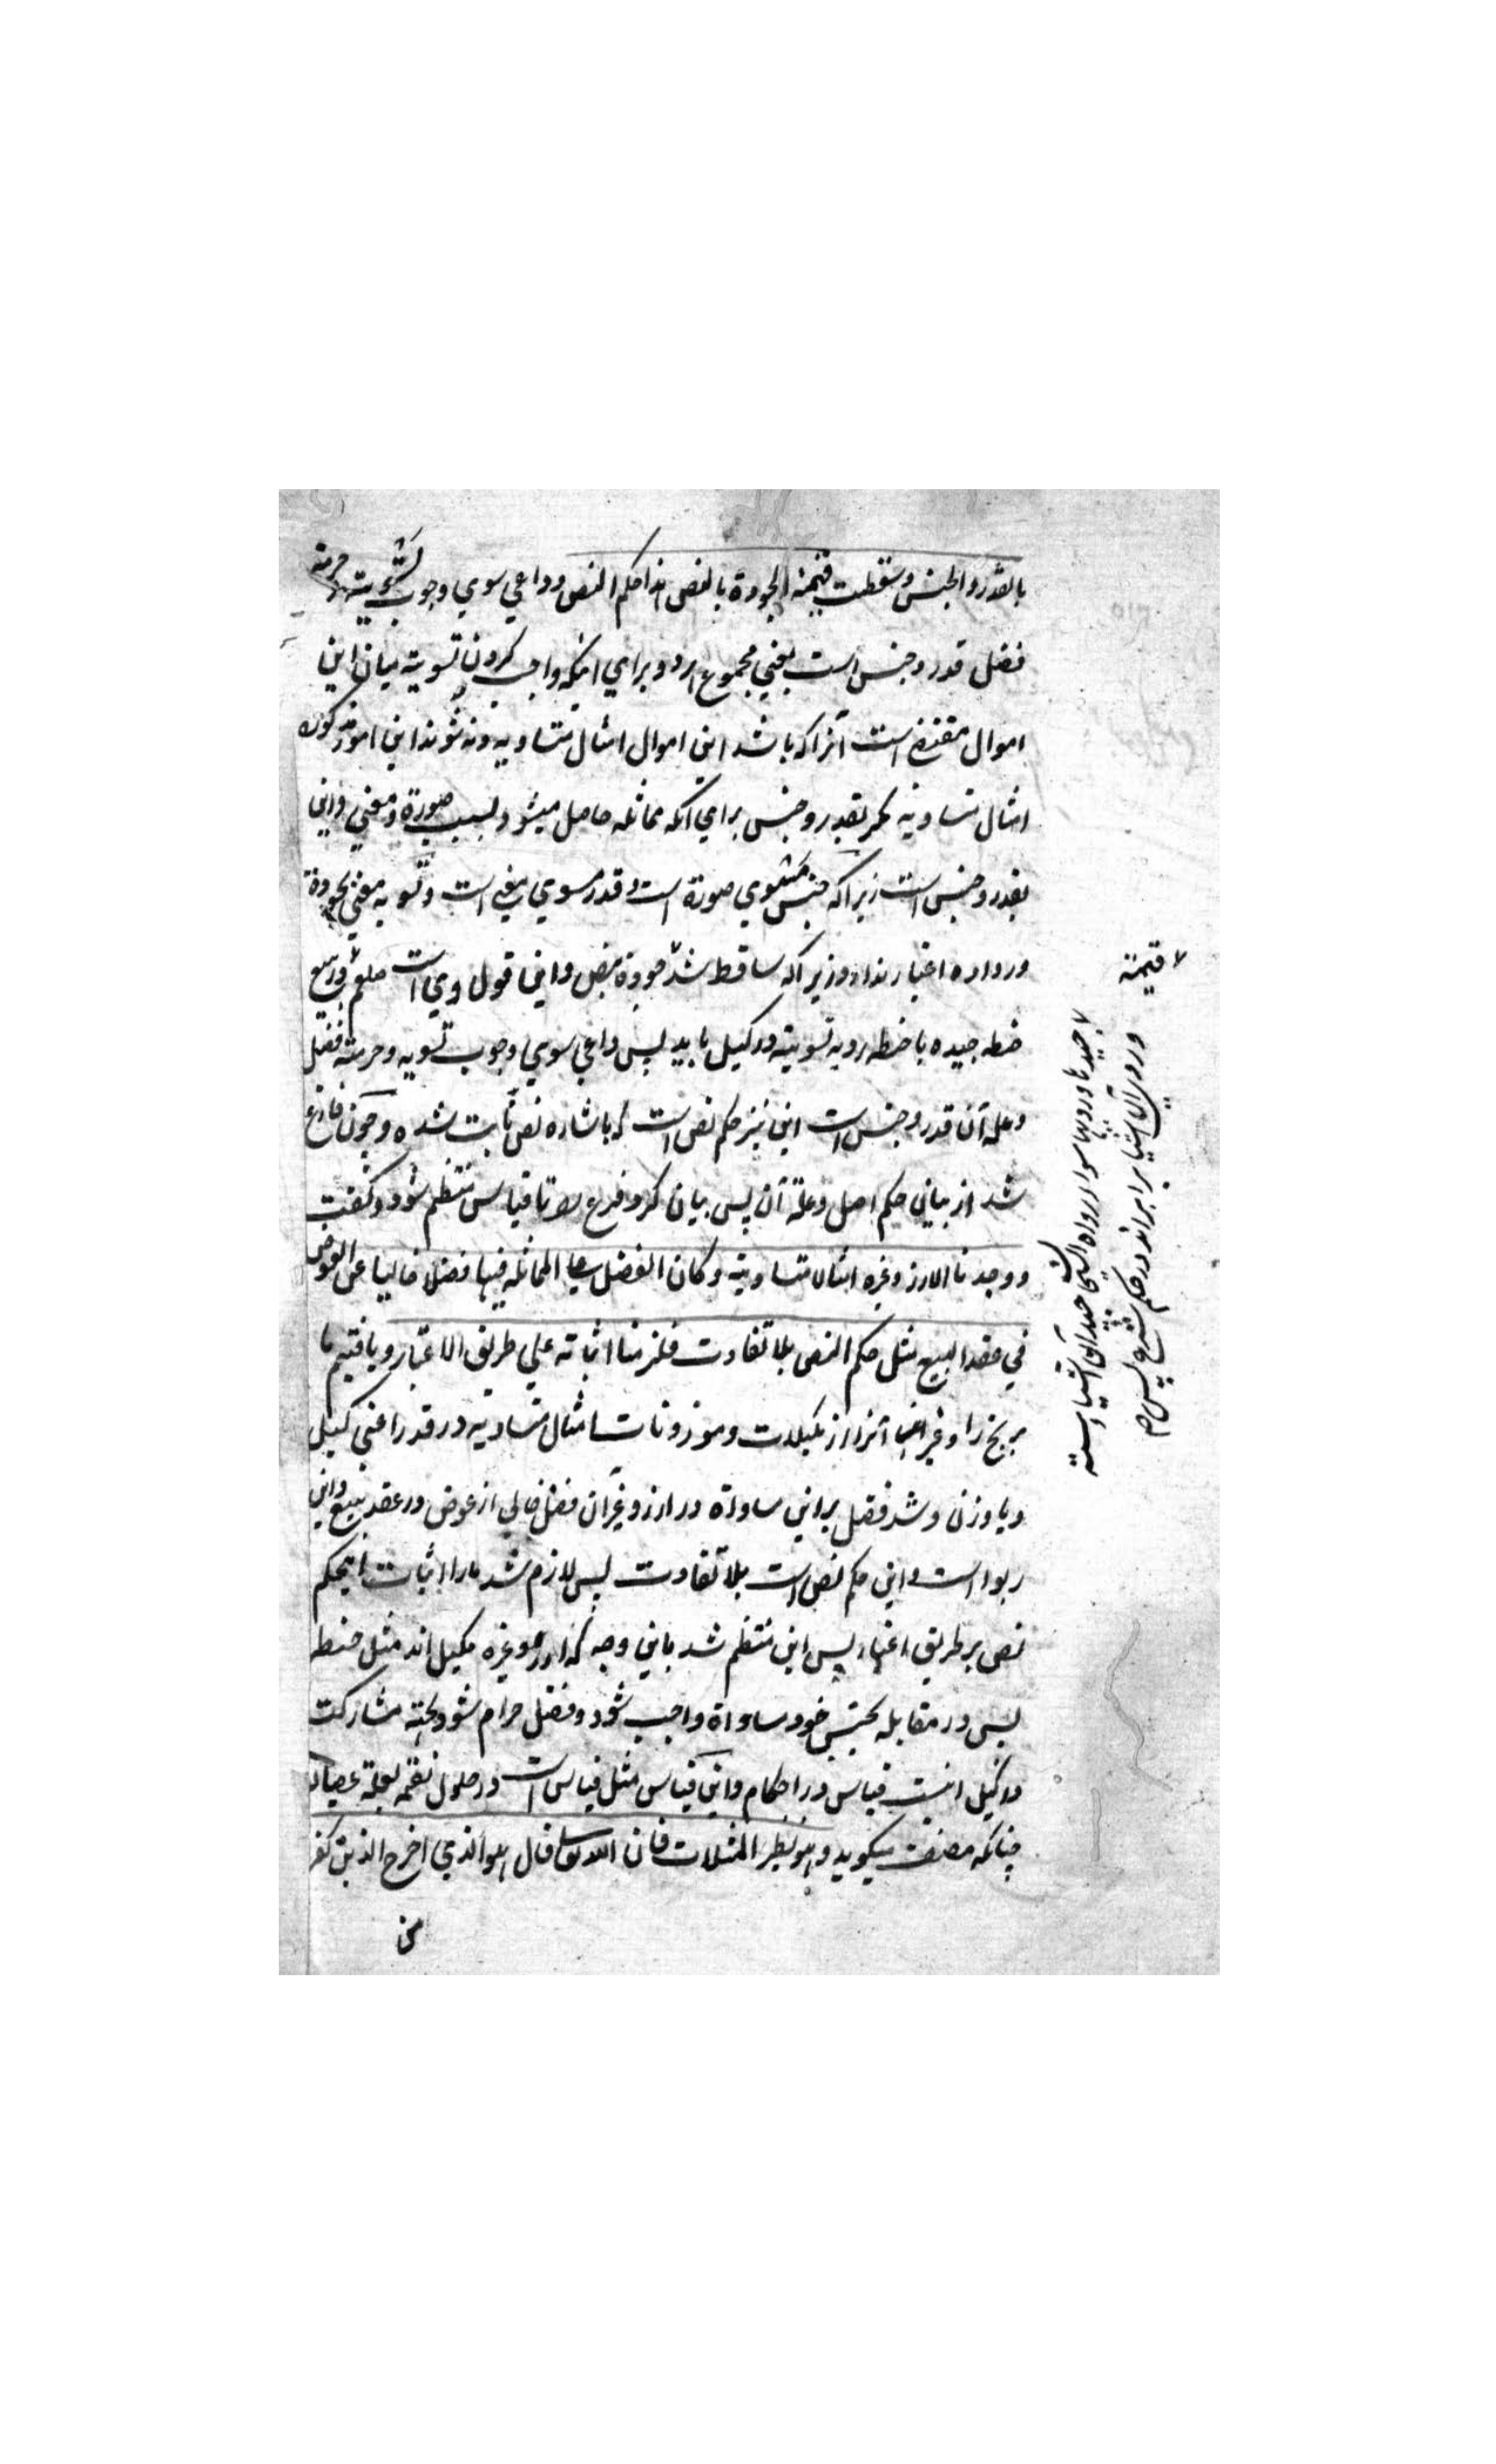 بالقدر والجنس وسقطت قیمة الجودة بالنص هذا حکم النص وداعي سوي وجوب تسویته وحرمة
فضل قدر وجنس است یعني مجموع هر دو براي اینکه واجب کردن تسویة میان این
اموال مقتضی است آنرا که باشد این اموال امثال متساویه ونه شوند این اموال مذکوره
امثال متساویه مگر بقدر وجنس براي آنکه مماثله حاصل میشود بسبب صورة ومعني واین
بقدر وجنس است زیراکه جنس مسوي صورة است وقدر مسوي معني است وتسویه معني بجودة
ورداءة اعتبار ندارد زیراکه ساقط شد جودة بنص واین قول وي است صلعم در بیع
حنطه جیده با حنطه ردیه تسویته در کیل باید پس داعي سوي وجوب تسویه وحرمته فضل
وعلة آن قدر وجنس است این نیز حکم نص است که باشاره نص ثابت شده وچون فارغ
شد از بیان حکم اصل وعلة آن پس بیان کرد فرع را تا قیاس منتظم شود وگفت
ووجدنا الارز وغیره امثالا متساویته وکان الفضل علی المماثله فیها فضلا خالیا عن العوض
في عقد البیع مثل حکم النص بلا تفاوت فلزمنا اثباته علي طریق الاعتبار ویافتیم ما
برنج را وغیر آنرا از مکیلات وموزونات امثال متساویه در قدر اعني کیل
ویا وزن وشد فضل براین مساواة در ارز وغیر آن فضل خالي از عوض در عقد بیع واین
ربوا است واین حکم نص است بلا تفاوت پس لازم شد مارا اثبات اینحکم
نص بر طریق اعتبار پس این منتظم شد باین وجه که ارز وغیره مکیل اند مثل حنطه
پس در مقابله بجنس خود مساواة واجب شود وفضل حرام شود بجهة مشارکت
در کیل اینست قیاس در احکام واین قیاس مثل قیاس است در حلول نقمه بعلة عصیان
چنانکه مصنف میگوید وهو نظیر المثلات فان الله تعالی قال هو الذي اخرج الذین کفروا
من
قیمة